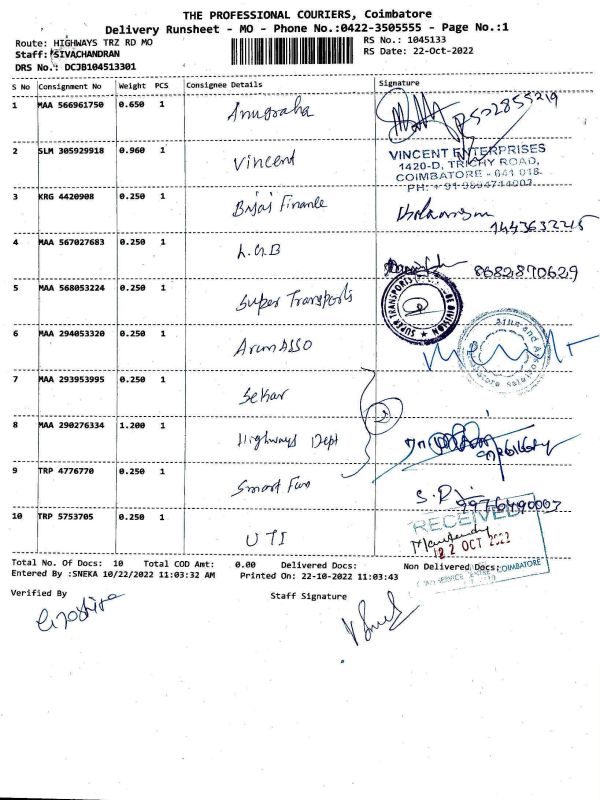 THE PROFESSIONAL COURIERS, Coimbatore
Delivery Runsheet - MO - Phone No.:0422-3505555 - Page No.:1
Route: HIGHWAYS TRZ RD MO
RS No.: 1045133
Staff: SIVACHANDRAN
RS Date: 22-Oct-2022
DRS No.: DCJB104513301
S No Consignment No Weight PCS Consignee Details Signature
1 MAA 566961750 0.650 1 Anugraha
2 SLM 305929918 0.960 1 Vincent
VINCENT ENTERPRISES
1420-D, TRICHY ROAD,
COIMBATORE - 641 018.
3 KRG 4420908 0.250 1 Bajaj Finance
4 MAA 567027683 0.250 1 L.G.B
8682870629
5 MAA 568053224 0.250 1 Super Transports
SUPER TRANSPORTS
6 MAA 294053320 0.250 1 Arun ASSO
7 MAA 293953995 0.250 1 Sekar
8 MAA 290276334 1.200 1 Highways Dept
9 TRP 4776770 0.250 1 Smart
10 TRP 5753705 0.250 1 UTI
RECEIVED
22 OCT 2022
COIMBATORE
Total No. Of Docs: 10 Total COD Amt: 0.00 Delivered Docs: Non Delivered Docs:
Entered By :SNEKA 10/22/2022 11:03:32 AM Printed On: 22-10-2022 11:03:43
Verified By
Staff Signature